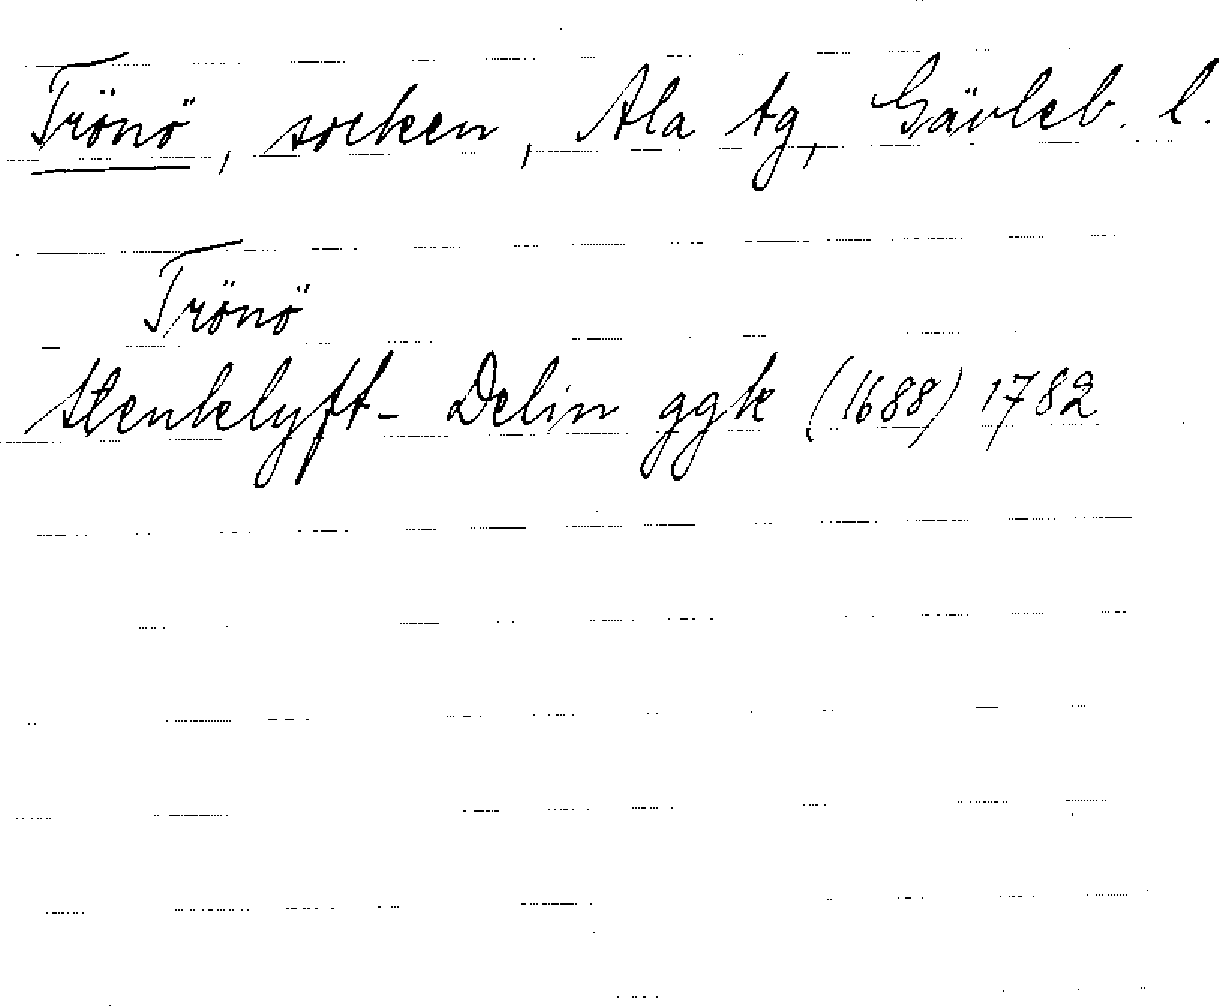 Trönö, socken, Ala tg, Gävleb. l.
Trönö
Stenklyft- Delin ggk (1688) 1782